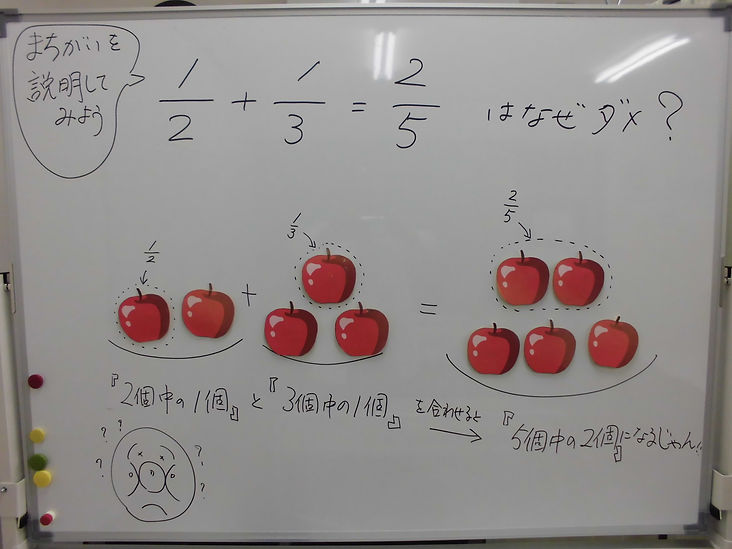 まちがいを
説明して
みよう
1/2 + 1/3 = 2/5 はなぜダメ?
1/2
1/3
2/5
+
=
『2個中の1個』と『3個中の1個』を合わせると→『5個中の2個』になるじゃん!!
? ? ? ? ? ?